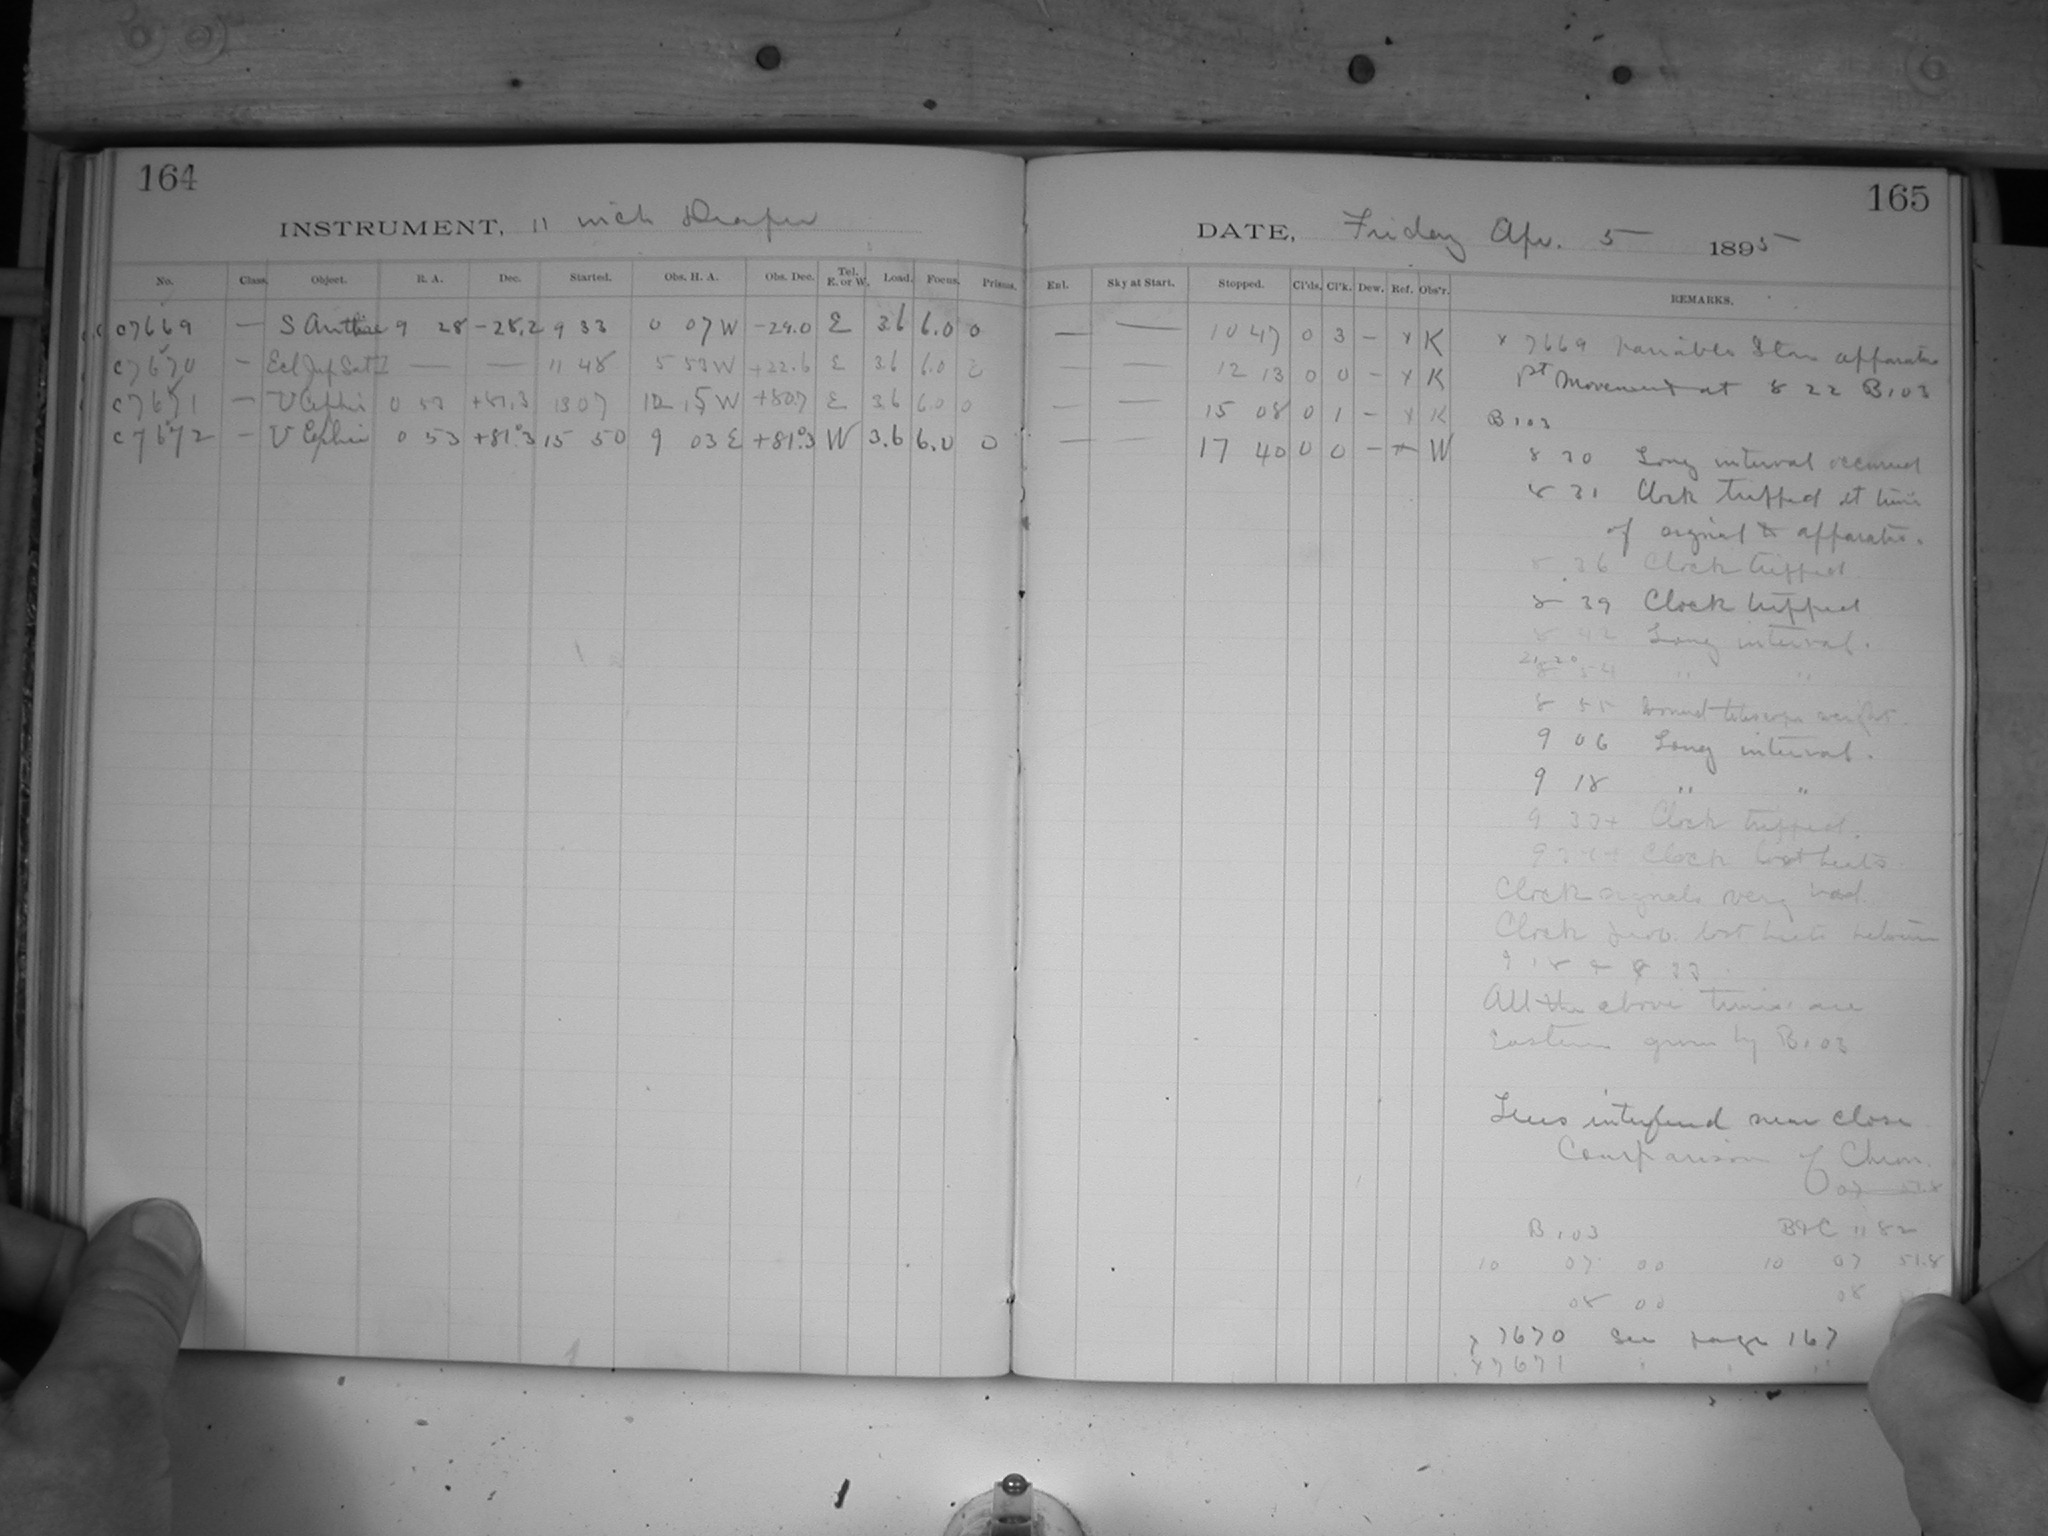 164
INSTRUMENT, 11 inch Draper
No. Class. Object. R. A. Dec. Started. Obs. H. A. Obs. Dec. Tel. E. or W. Load. Focus. Prisms.
C7669 — S Antliae 9 28 -28.2 9 33 0 07 W -29.0 E 36 6.0 0
C7670 — Ecl Jup Sat I — — 11 48 5 53 W +22.6 E 36 6.0
C7671 — U Cephei 0 53 +81.3 1307 12 15 W +80.7 E 36 6.0 0
C7672 — U Cephei 0 53 +81°.3 15 50 9 03 E +81°.3 W 3.6 6.0 0
165
DATE, Friday Apr. 5 1895
Enl. Sky at Start. Stopped. Cl'ds. Cl'k. Dew. Ref. Obs'r. REMARKS.
— — 10 47 0 3 - x K
— — 12 13 0 0 - x K
— — 15 08 0 1 - x K
— — 17 40 0 0 - W
x 7669 Variable Star apparatus
1st Movement at 8 22 B103
B103
8 30 Long interval occurred
8 31 Clock tripped at time
of signal to apparatus.
8 36 Clock tripped
8 39 Clock tripped
8 42 Long interval.
8 54 " "
8 55 Wound telescope weight.
9 06 Long interval.
9 18 " "
9 33+ Clock tripped.
Clock lost beats
Clock signals very bad.
Clock prob. lost beats between
9 18 & 33
All the above times are
Eastern given by B103
Trees interfered near close
Comparison of Chron.
07 51.8
B103 B&C 1182
10 07 00 10 07 51.8
08 00 08
x 7670 See page 167
x 7671 " " "